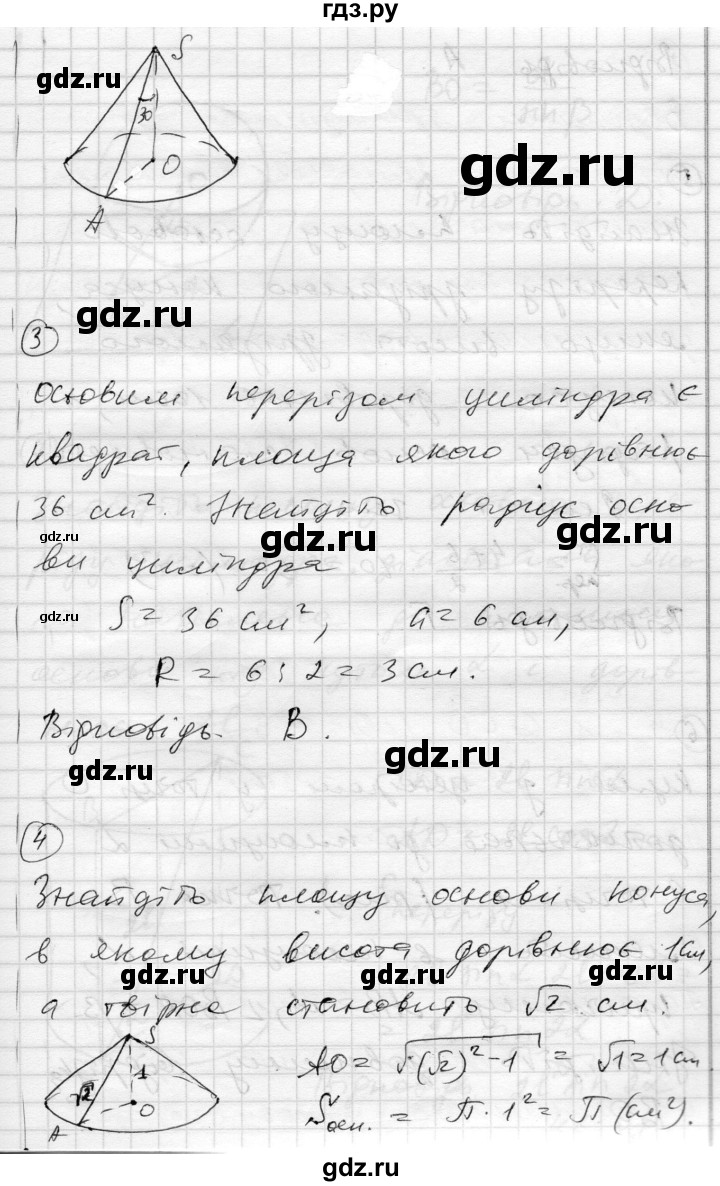 гдз.ру
gdz.ru
S
30
O
A
gdz.ru
gdz.ru
3
основим перерізом циліндра є
квадрат, площа якого дорівнює
36 см². Знайдіть радіус осно-
gdz.ru gdz.ru gdz.ru
ви циліндра
gdz.ru
S = 36 см², a = 6 см,
R = 6 : 2 = 3 см.
Відповідь. В.
gdz.ru gdz.ru
4
Знайдіть площу основи конуса,
в якому висота дорівнює 1 см,
gdz.ru gdz.ru gdz.ru
а твірна становить √2 см.
S
√2
1
O
A
AO = √(√2)² - 1 = √1 = 1 см
Sосн. = П · 1² = П (см²).
gdz.ru
gdz.ru
gdz.ru